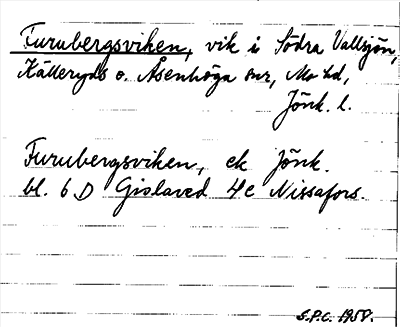 Furubergsviken, vik i Södra Vallsjön,
Källeryds o. Åsenhöga snr, Mo hd,
Jönk. l.
Furubergsviken, ek Jönk.
bl. 6 D Gislaved 4c Nissafors.
S.P.C. 1958.